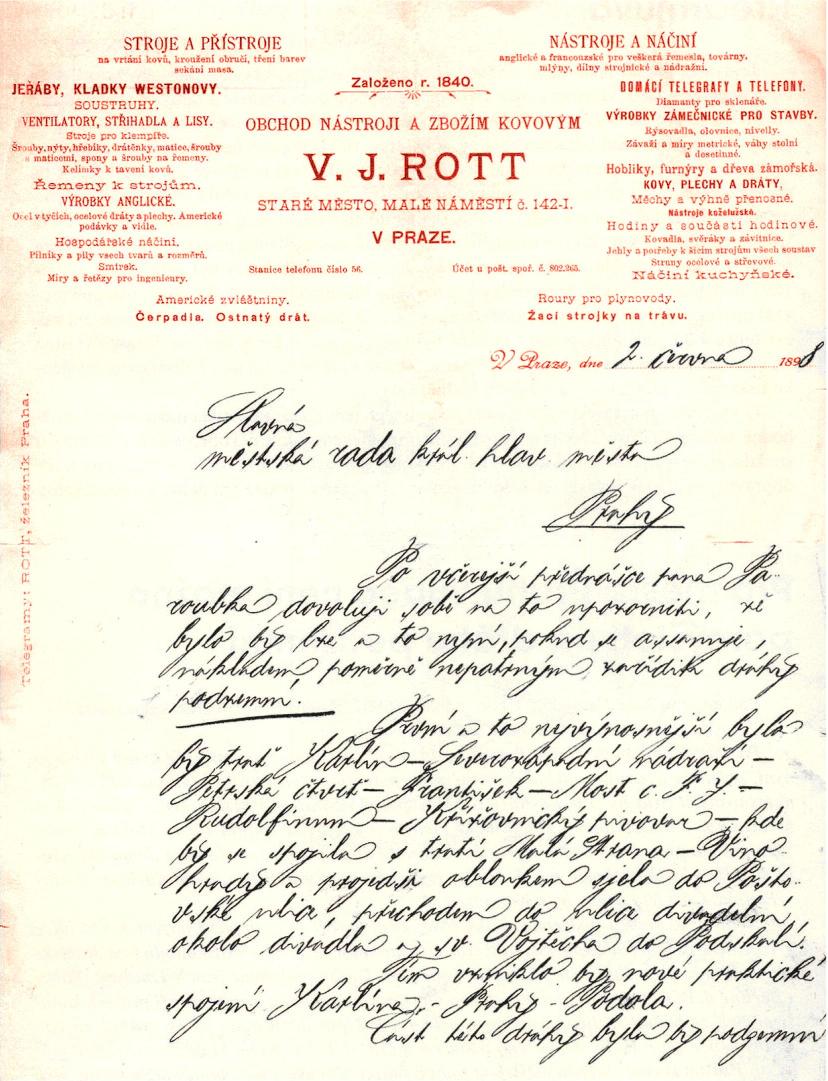 STROJE A PŘÍSTROJE
na vrtání kovů, kroužení obručí, tření barev
sekání masa.
JEŘÁBY, KLADKY WESTONOVY.
SOUSTRUHY.
VENTILATORY, STŘIHADLA A LISY.
Stroje pro klempíře.
Šrouby, nýty, hřebíky, drátěnky, matice, šrouby
s maticemi, spony a šrouby na řemeny.
Kelímky k tavení kovů.
Řemeny k strojům.
VÝROBKY ANGLICKÉ.
Ocel v tyčích, ocelové dráty a plechy. Americké
podávky a vidle.
Hospodářské náčiní.
Pilníky a pily všech tvarů a rozměrů.
Smirek.
Míry a řetězy pro ingenieury.
Americké zvláštniny.
Čerpadla. Ostnatý drát.
Založeno r. 1840.
OBCHOD NÁSTROJI A ZBOŽÍM KOVOVÝM
V. J. ROTT
STARÉ MĚSTO, MALÉ NÁMĚSTÍ č. 142-I.
V PRAZE.
Stanice telefonu číslo 56.
Účet u pošt. spoř. č. 802.265.
NÁSTROJE A NÁČINÍ
anglické a francouzské pro veškerá řemesla, továrny,
mlýny, dílny strojnické a nádražní.
DOMÁCÍ TELEGRAFY A TELEFONY.
Diamanty pro sklenáře.
VÝROBKY ZÁMEČNICKÉ PRO STAVBY.
Rýsovadla, olovnice, nivelly.
Závaží a míry metrické, váhy stolní
a desetinné.
Hobliky, furnýry a dřeva zámořská.
KOVY, PLECHY A DRÁTY,
Měchy a výhně přenosné.
Nástroje koželužské.
Hodiny a součásti hodinové.
Kovadla, svěráky a závitnice.
Jehly a potřeby k šicím strojům všech soustav
Struny ocelové a střevové.
Náčiní kuchyňské.
Roury pro plynovody.
Žací strojky na trávu.
V Praze, dne 2. června 1898
Telegramy: ROTT, železník Praha.
Slavná
městská rada král. hlav. města
Prahy
Po včerejší přednášce pana Pa-
roubka dovoluji sobě na to upozorniti, že
bylo by lze a to nyní, pokud se assanuje,
nákladem poměrně nepatrným zaříditi dráhy
podzemní.
První a to nejvýnosnější byla
by trať Karlín – Severozápadní nádraží –
Petrská čtvrť – František – Most c. F. J. –
Rudolfinum – Křížovnický pivovar – kde
by se spojila s tratí Malá Strana – Vino-
hrady a projedši obloukem sjela do Pošto-
vské ulice, přechodem do ulice divadelní
okolo divadla a sv. Vojtěcha do Podskalí.
Tím vzniklo by nové praktické
spojení Karlína – Prahy – Podola.
Část této dráhy byla by podzemní